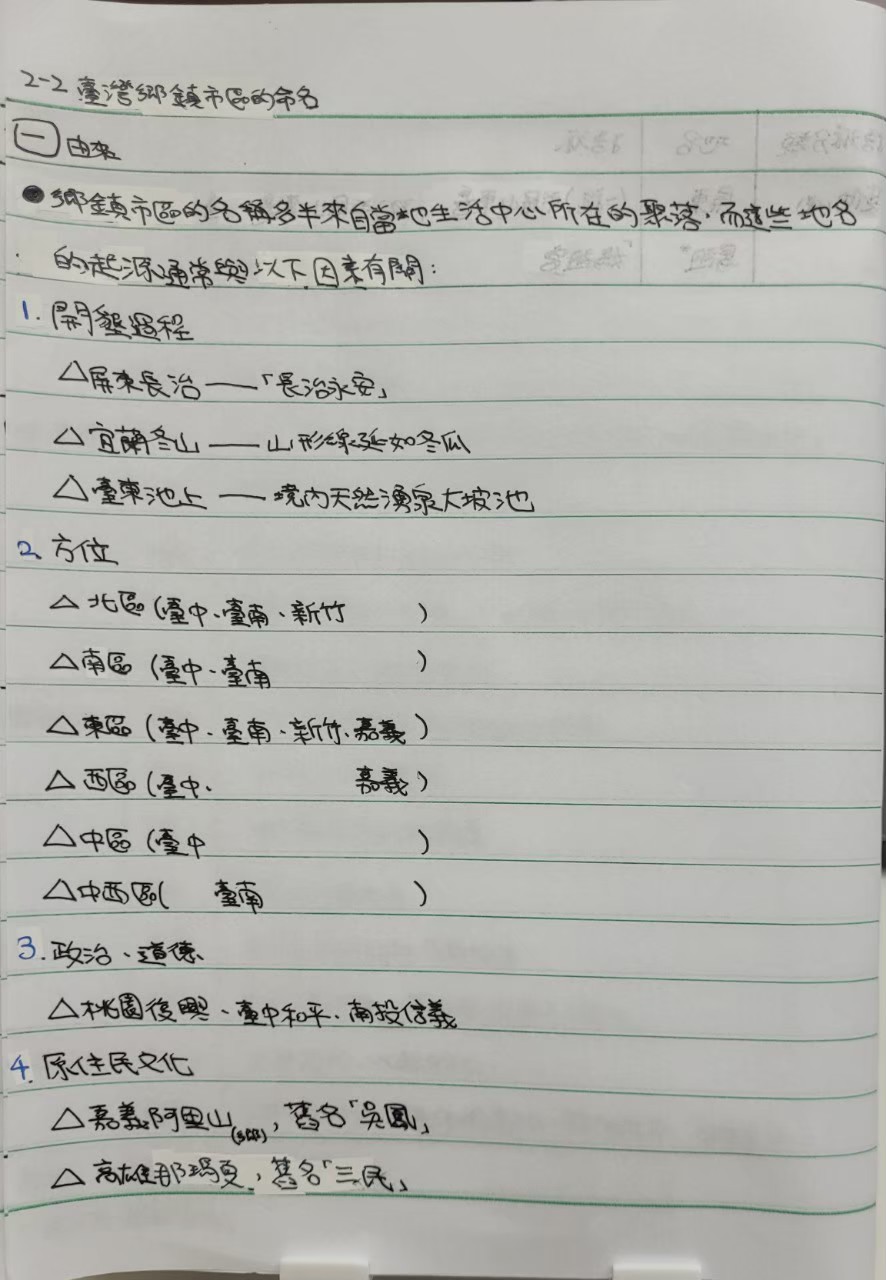 2-2 臺灣鄉鎮市區的命名
㊀ 由來
●鄉鎮市區的名稱多半來自當地生活中心所在的聚落,而這些地名
的起源通常與以下因素有關:
1. 開墾過程
△屏東長治——「長治永安」
△宜蘭冬山——山形綿延如冬瓜
△臺東池上——境內天然湧泉大坡池
2. 方位
△北區(臺中、臺南、新竹)
△南區(臺中、臺南)
△東區(臺中、臺南、新竹、嘉義)
△西區(臺中、嘉義)
△中區(臺中)
△中西區(臺南)
3. 政治、道德
△桃園復興、臺中和平、南投信義
4. 原住民文化
△嘉義阿里山(鄉),舊名「吳鳳」
△高雄那瑪夏,舊名「三民」